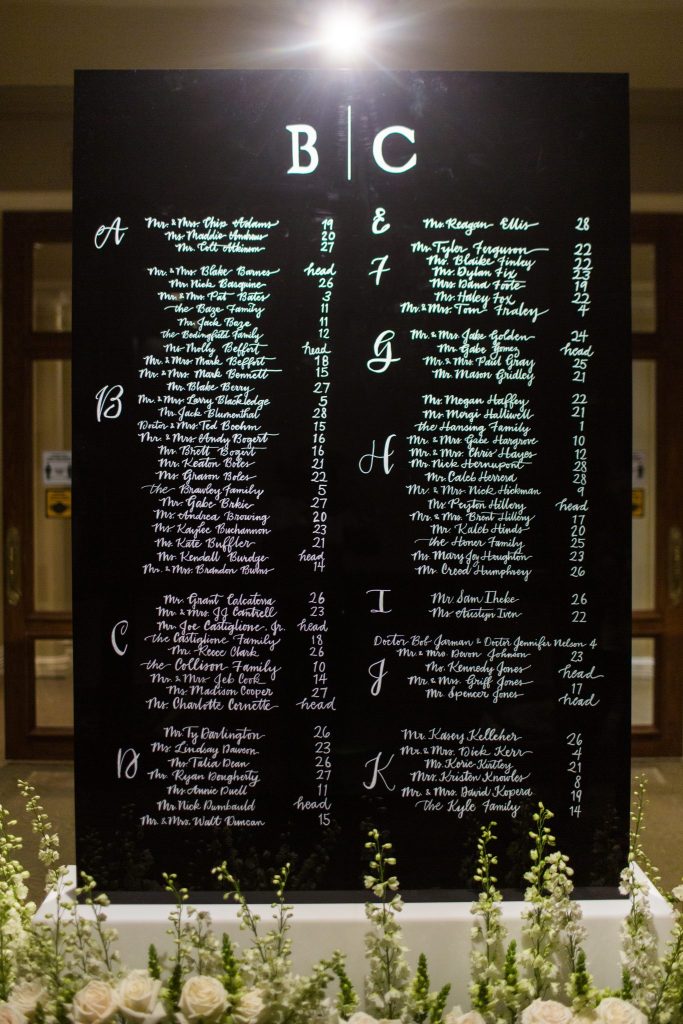 B | C
A
Mr. & Mrs. Chip Adams 19
Ms. Maddie Andrews 20
Mr. Colt Atkinson 27
B
Mr. & Mrs. Blake Barnes head
Mr. Nick Basquine 26
Mr. & Mrs. Pat Bates 3
the Baze Family 11
Mr. Jack Baze 11
the Bedingfield Family 12
Ms. Molly Beffort head
Mr. & Mrs. Mark Beffort 18
Mr. & Mrs. Mark Bennett 15
Mr. Blake Berry 27
Mr. & Mrs. Larry Blackledge 5
Mr. Jack Blumenthal 28
Doctor & Mrs. Ted Boehm 15
Mr. & Mrs. Andy Bogert 16
Mr. Brett Bogert 16
Mr. Keaton Boles 21
Ms. Grason Boles 22
the Brawley Family 5
Mr. Gabe Brkic 27
Ms. Andrea Browing 20
Ms. Kaylee Buchannon 23
Ms. Kate Buffler 21
Ms. Kendall Burdge head
Mr. & Mrs. Brandon Burns 14
C
Mr. Grant Calcaterra 26
Mr. & Mrs. JJ Cantrell 23
Mr. Joe Castiglione Jr. head
the Castiglione Family 18
Mr. Reece Clark 26
the Collison Family 10
Mr. & Mrs. Jeb Cook 14
Ms. Madison Cooper 27
Ms. Charlotte Cornette head
D
Mr. Ty Darlington 26
Ms. Lindsay Dawon 23
Ms. Talia Dean 26
Mr. Ryan Dougherty 27
Ms. Annie Duell 11
Mr. Nick Dumbauld head
Mr. & Mrs. Walt Duncan 15
E
Ms. Reagan Ellis 28
F
Mr. Tyler Ferguson 22
Ms. Blaike Finley 22
Ms. Dylan Fix 23
Mrs. Dana Foote 19
Ms. Haley Fox 22
Mr. & Mrs. Tom Fraley 4
G
Mr. & Mrs. Jake Golden 24
Mr. Gabe head
Mr. & Mrs. Paul Gray 25
Mr. Mason Gridley 21
H
Ms. Megan Haffey 22
Ms. Morgi Halliwell 21
the Hansing Family 1
Mr. & Mrs. Gabe Hargrove 10
Mr. & Mrs. Chris Hayes 12
Mr. Nick Hernupont 28
Mr. Caleb Herrera 28
Mr. & Mrs. Nick Hickman 9
Ms. Peyton Hillery head
Mr. & Mrs. Brent Hillery 17
Mr. Kaleb Hinds 20
the Honer Family 25
Ms. Mary Joy Houghton 23
Mr. Creed Humphrey 26
I
Mr. Sam Iheke 26
Ms. Austyn Iven 22
J
Doctor Bob Jarman & Doctor Jennifer Nelson 4
Mr. & Mrs. Devon Johnson 23
Ms. Kennedy Jones head
Mr. & Mrs. Griff Jones 17
Mr. Spencer Jones head
K
Mr. Kasey Kelleher 26
Mr. & Mrs. Dick Kerr 4
Ms. Korie Kirtley 21
Mrs. Kristen Knowles 8
Mr. & Mrs. David Kopera 19
the Kyle Family 14